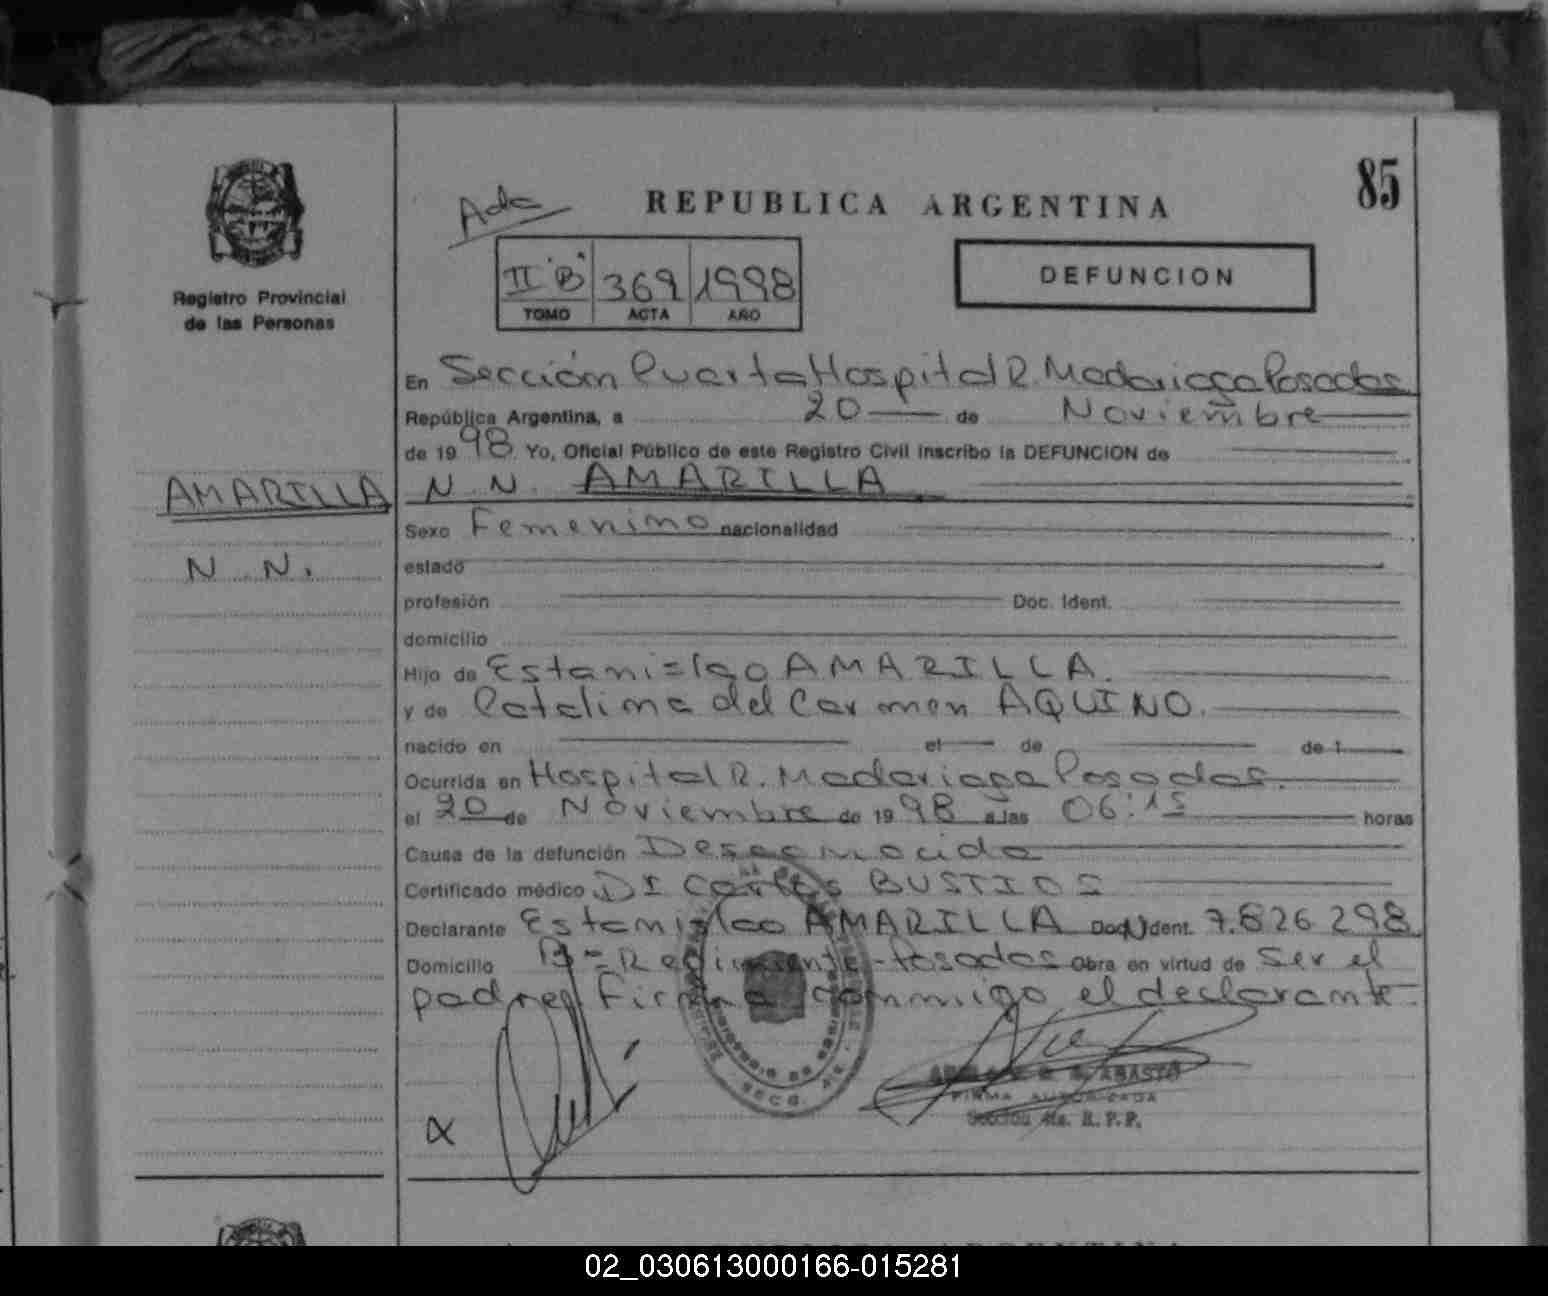 85
REPUBLICA ARGENTINA
Registro Provincial
de las Personas
II "B" 369 1998
TOMO ACTA AÑO
DEFUNCION
En Sección Cuarta Hospital R. Madariaga Posadas
República Argentina, a 20 de Noviembre
de 1998 Yo, Oficial Público de este Registro Civil inscribo la DEFUNCION de
AMARILLA
N. N.
N. N. AMARILLA
Sexo Femenino nacionalidad
estado
profesión Doc. Ident.
domicilio
Hijo de Estanislao AMARILLA.
y de Catalina del Carmen AQUINO.
nacido en el de de 1
Ocurrida en Hospital R. Madariaga Posadas.
el 20 de Noviembre de 1998 a las 06:15 horas
Causa de la defunción Desconocida
Certificado médico Dr Carlos BUSTIOS
Declarante Estanislao AMARILLA Doc. Ident. 7.826.298
Domicilio Posadas Obra en virtud de ser el
padre. Firma conmigo el declarante.
ABASTO
FIRMA AUTORIZADA
Sección 4ta. R.P.P.
02_030613000166-015281